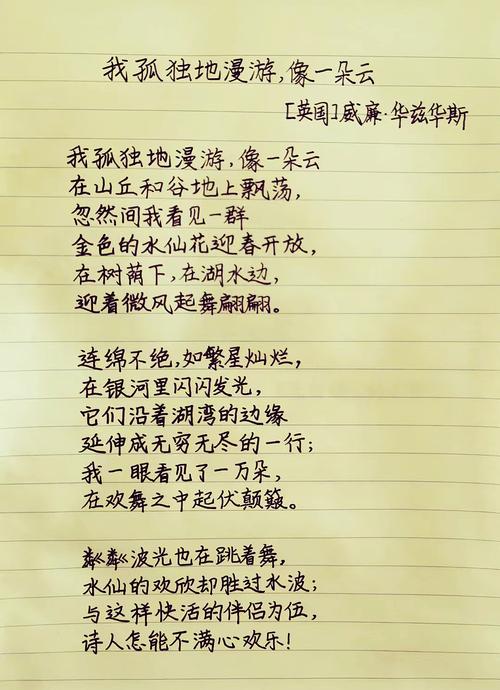 我孤独地漫游,像一朵云
[英国]威廉·华兹华斯
我孤独地漫游,像一朵云
在山丘和谷地上飘荡,
忽然间我看见一群
金色的水仙花迎春开放,
在树荫下,在湖水边,
迎着微风起舞翩翩。
连绵不绝,如繁星灿烂,
在银河里闪闪发光,
它们沿着湖湾的边缘
延伸成无穷无尽的一行;
我一眼看见了一万朵,
在欢舞之中起伏颠簸。
粼粼波光也在跳着舞,
水仙的欢欣却胜过水波;
与这样快活的伴侣为伍,
诗人怎能不满心欢乐!